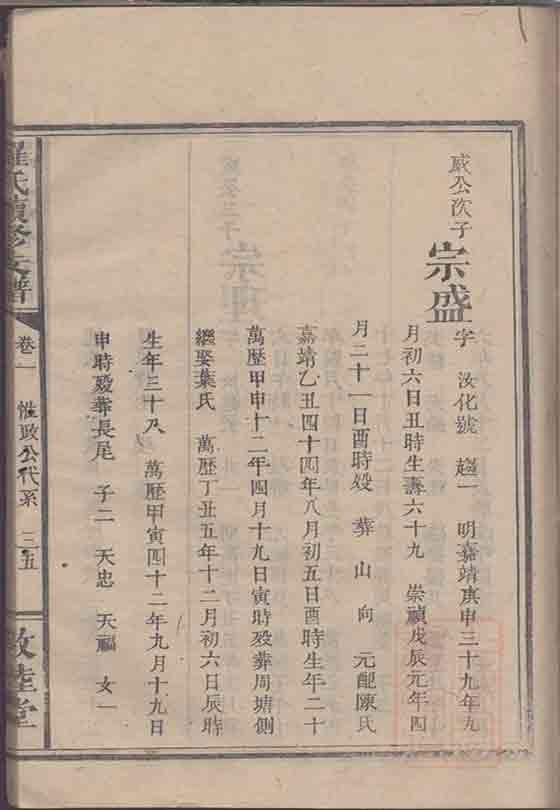 威公次子
宗盛
字 汝化號 趨一 明嘉靖庚申三十九年九
月初六日丑時生壽六十九 崇禎戊辰元年四
月二十一日酉時殁 葬 山 向 元配陳氏
嘉靖乙丑四十四年八月初五日酉時生年二十
萬歷甲申十二年四月十九日寅時殁葬周塘側
繼娶葉氏 萬歷丁丑五年十二月初六日辰時
生年三十八 萬歷甲寅四十二年九月十九日
申時殁葬長尾 子二 天忠 天福 女一
羅氏續修支譜
卷一
惟政公代系 三五
敦睦堂